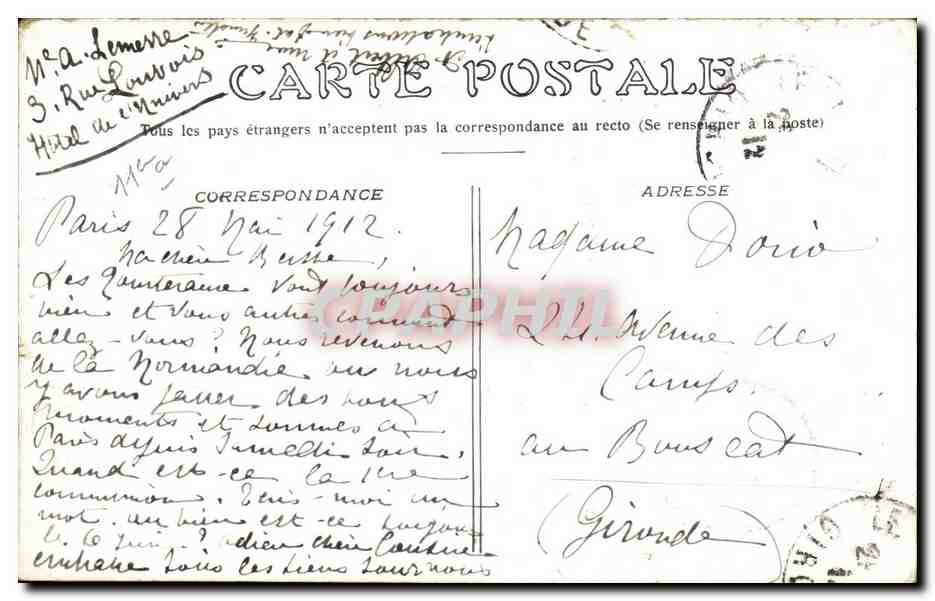 Me. A. Lemerre
3, Rue Louvois
Hotel de l'Univers
CARTE POSTALE
Tous les pays étrangers n'acceptent pas la correspondance au recto (Se renseigner à la poste)
CORRESPONDANCE
Paris 28 Mai 1912.
Ma chère
Les vont toujours
bien et vous autres comment
allez-vous? Nous revenons
de la Normandie ou nous
y avons passer des bons
moments et sommes à
Paris depuis Samedi Soir.
Quand est-ce la 1re
communion. Ecris-moi un
mot. ou bien est-ce toujours
le 6 Juin? adieu chère Cousine
embrasse tous les tiens pour nous
ADRESSE
Madame
24. Avenue des
Camps.
au Bouscat
(Gironde)
CPAPHIL